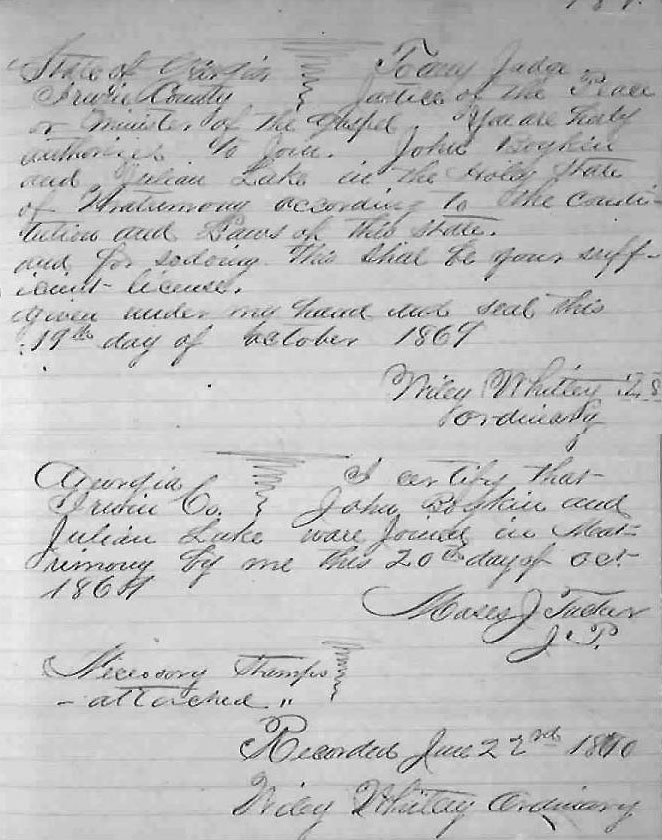 State of Georgia To any Judge
Irwin County Justice of the Peace
or Minister of the Gospel You are hereby
authorized to Join John Boykin
and Julian Lake in the Holy State
of Matrimony according to the Consti-
tution and Laws of this State.
and for so doing this Shal be your suff-
icient license.
Given under my hand and seal this
19th day of October 1869
Wiley Whitley L S
Ordinary
Georgia I certify that
Irwin Co. John Boykin and
Julian Lake ware Joined in Mat-
rimony by me this 20th day of Oct
1869
Moses J Tucker
J. P.
Necessary Stamps
- attached "
Recorded June 22nd 1870
Wiley Whitley Ordinary